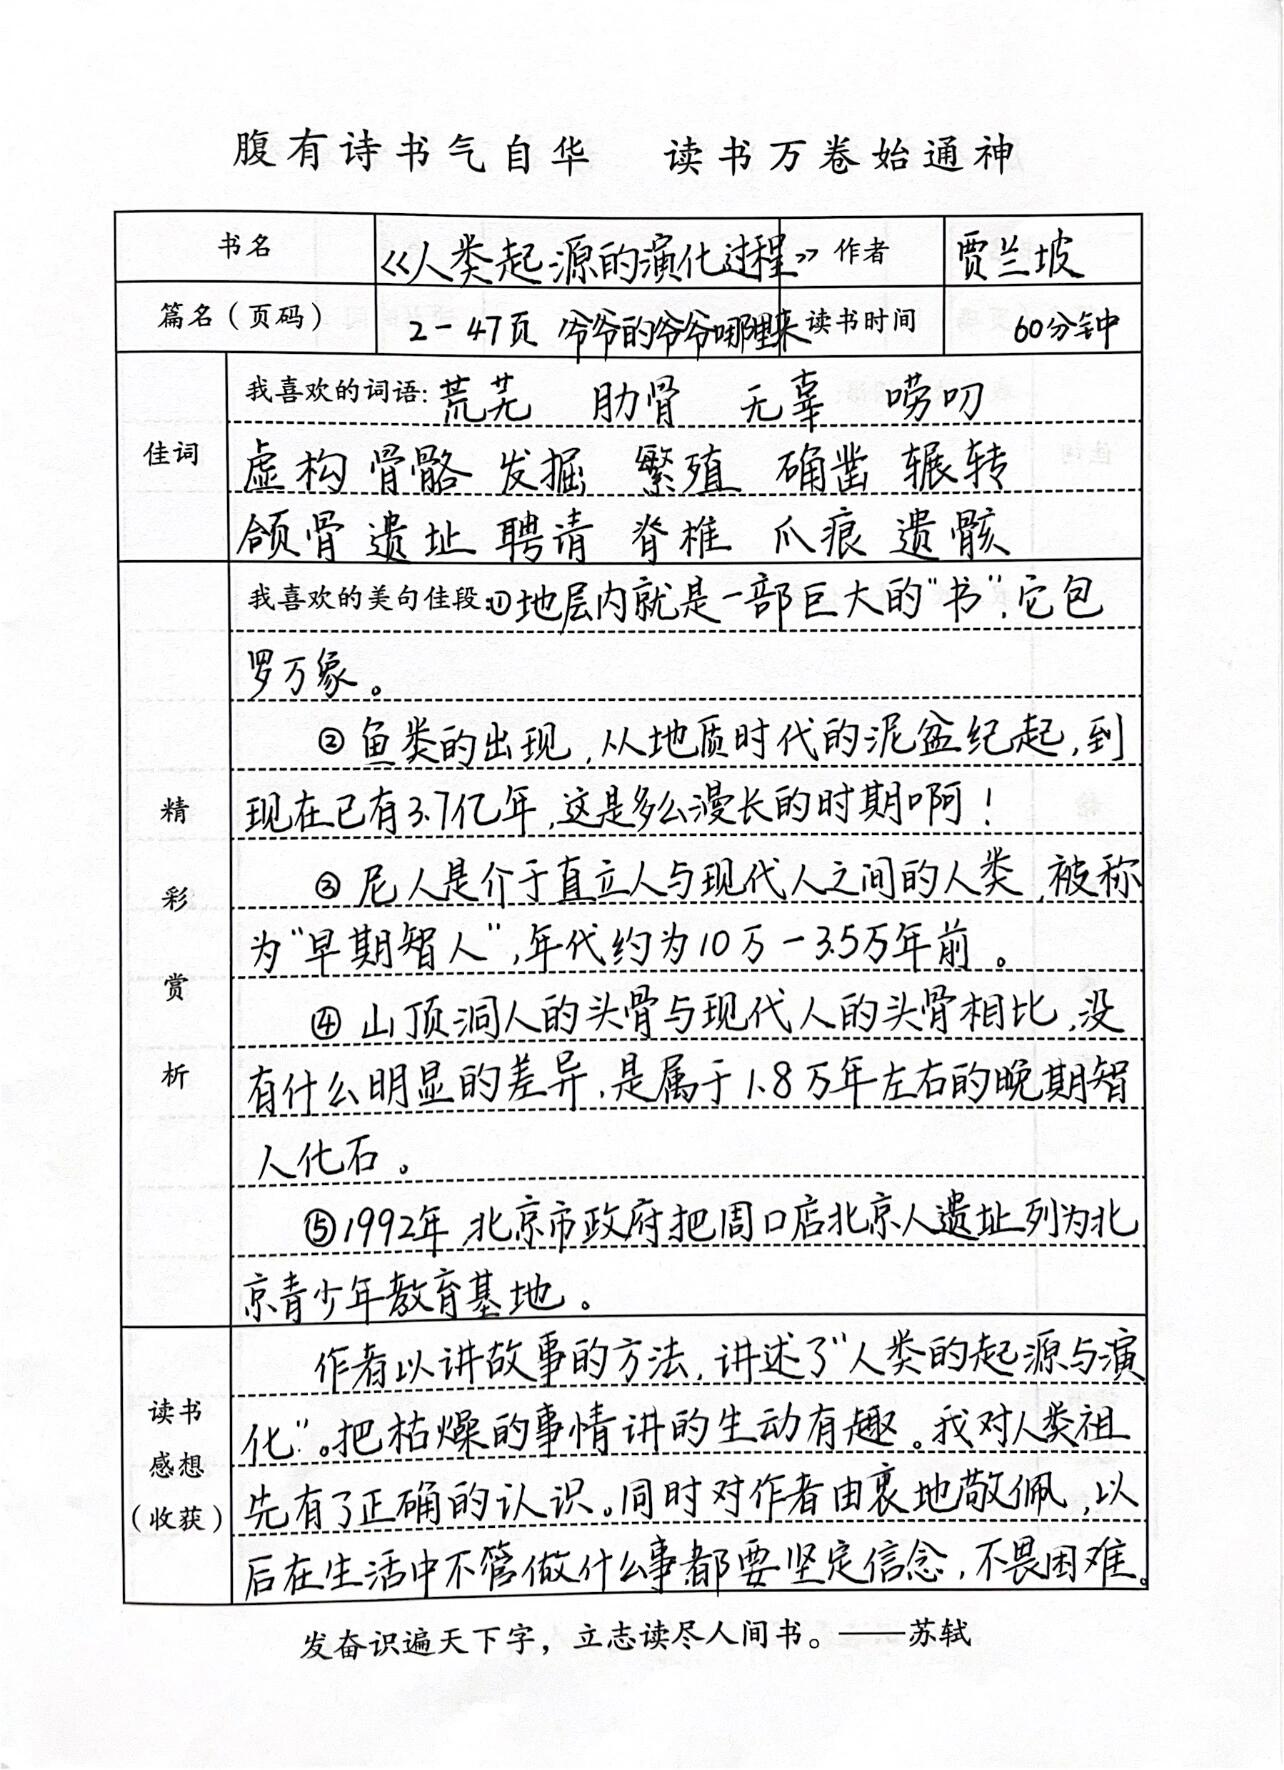 腹有诗书气自华 读书万卷始通神
书名 《人类起源的演化过程》 作者 贾兰坡
篇名(页码) 2-47页 爷爷的爷爷哪里来 读书时间 60分钟
佳词
我喜欢的词语: 荒芜 肋骨 无辜 唠叨
虚构 骨骼 发掘 繁殖 确凿 辗转
颌骨 遗址 聘请 脊椎 爪痕 遗骸
精彩赏析
我喜欢的美句佳段:①地层内就是一部巨大的“书”,它包
罗万象。
②鱼类的出现,从地质时代的泥盆纪起,到
现在已有3.7亿年,这是多么漫长的时期啊!
③尼人是介于直立人与现代人之间的人类,被称
为“早期智人”,年代约为10万-3.5万年前。
④山顶洞人的头骨与现代人的头骨相比,没
有什么明显的差异,是属于1.8万年左右的晚期智
人化石。
⑤1992年,北京市政府把周口店北京人遗址列为北
京青少年教育基地。
读书
感想
(收获)
作者以讲故事的方法,讲述了“人类的起源与演
化”。把枯燥的事情讲的生动有趣。我对人类祖
先有了正确的认识。同时对作者由衷地敬佩,以
后在生活中不管做什么事都要坚定信念,不畏困难。
发奋识遍天下字,立志读尽人间书。——苏轼